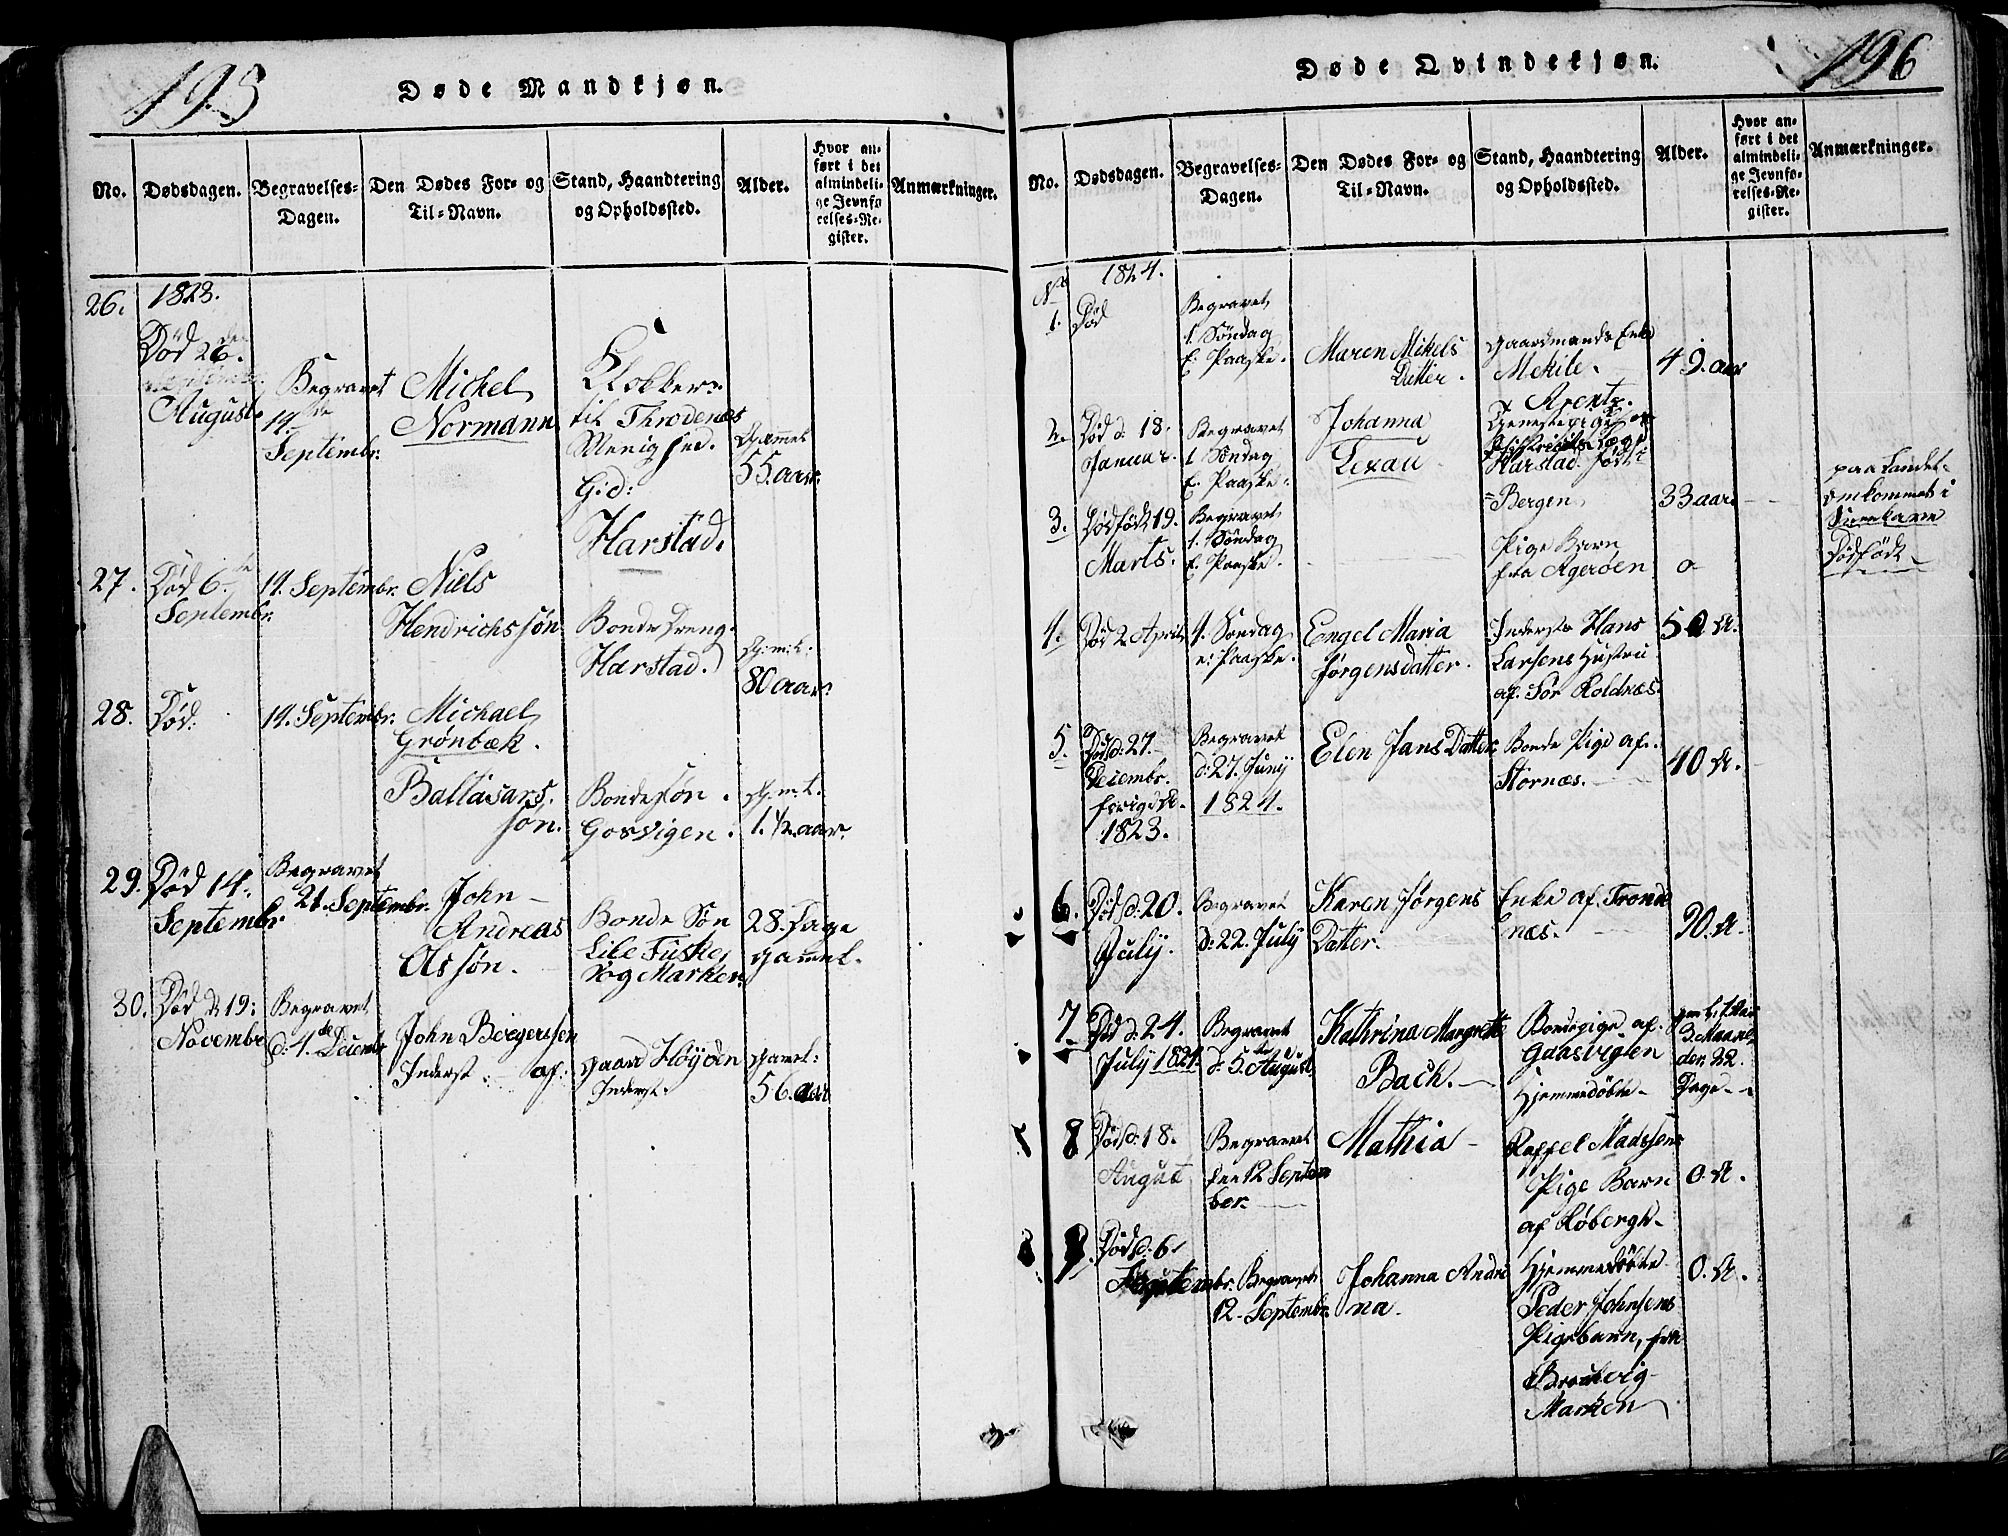 195
Døde Mandkjøn.
No.
Dødsdagen.
Begravelses-
Dagen.
Den Dødes For- og
Til-Navn.
Stand, Haandtering
og Opholdssted.
Alder.
Hvor an-
ført i det
almindeli-
ge Jevnfø
relses-Re-
gister.
Anmærkninger.
26.
1823.
Død 26 den
August.
Begravet
14 de
Septembr.
Michel
Normann
Klokker
til Throdenæs
Menighed.
G:d:
Harstad.
Gammel
55. aar.
27.
Død 6 te
Septembr.
14. Septembr.
Niels
Hendrichssøn
Bonde Dreng.
Harstad.
80 aar.
28.
Død.
14. Septembr.
Michael
Grønbæk.
Baltasars.
søn.
Bondesøn.
Gosvigen.
1. 1/2. aar.
29.
Død 14.
Septembr.
Begravet
21. Septembr.
John
Andreas
Olssøn.
Bonde Søn
Lile Fuske,
og Marken.
28. Dage
gammel.
30.
Død d. 19:
Novembr
Begravet
d: 4 de Decembr
John Bergerssen
Inderst af:
gaard Høyøen
Inderst.
gamel:
56. aar
196
Døde Qvindekjøn.
No.
Dødsdagen.
Begravelses-
Dagen.
Den Dødes For- og
Til-Navn.
Stand, Haandtering
og Opholdssted.
Alder.
Hvor an-
ført i det
almindeli-
ge Jevnfø-
relses-Re-
gister.
Anmærkninger.
No
1824.
1.
Død
Begravet
1. Søndag
E. Paaske.
Maren Mikels
Datter.
Gaardmands Enke
49. aar
2.
Død d. 18.
Januar.
Begravet
1. Søndag
E. Paaske.
Johanna
Lexau
Tjenestepige
Harstad. født i
Bergen.
33 aar
paa Landet
omkommet i
3.
Dødfødt 19.
Marts.
Begravet
1. Søndag
E. Paaske.
Pige Barn
fra Agerøen
0
Dødfødt
4.
Død 2 April
4. Søndag
e: Paaske.
Engel Maria
Jørgensdatter.
Inderste Hans
Larsens Hustru
af. Sør Roldnæs.
50 A.
5.
Død d: 27.
Decembr.
forige A.
1823.
Begravet
d: 27. Juny
1824.
Elen Jans Datter
Bonde Pige af.
Stornæs.
40 A.
6.
Død d: 20.
July.
Begravet
d: 22. July
Karen Jørgens
Datter.
Enke af. Tronde
næs.
90. A.
7.
Død d: 24.
July 1824.
Begravet
d: 5 te August.
Kathrina Margrethe
Bach.
Bondepige af.
Gaasvigen
Hjemmedøbte
3. Maane
der 22.
Dage
8
Død d: 18.
August
Begravet
den 12 Septem
ber.
Mathia
Roffel Madssens
Pige Barn
af Røbergh.
0. A.
9.
Død d. 6
Septembr.
Begravet
12. Septembr.
Johanna Andri
na.
Hjemmedøbte
Peder Johnsens
Pigebarn, fra
Marken
0. A.